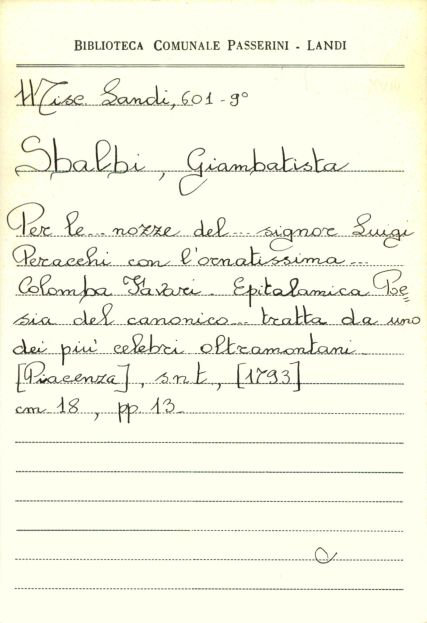 BIBLIOTECA COMUNALE PASSERINI - LANDI
Misc. Landi, 601-9º
Sbalbi, Giambatista
Per le... nozze del... signor Luigi
Peracchi con l'ornatissima...
Colomba Favari. Epitalamica Poe=
sia del canonico... tratta da uno
dei piu' celebri oltramontani.
[Piacenza], s.n.t., [1793]
cm. 18, pp. 13.